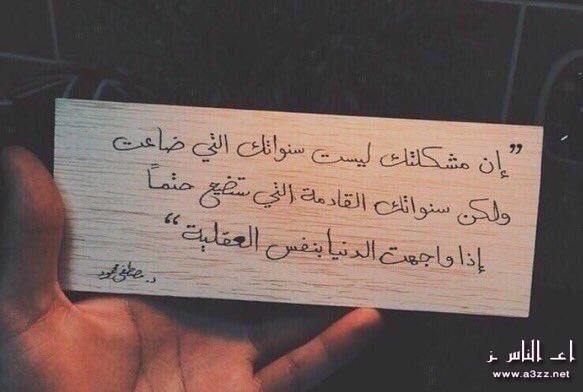 ”إن مشكلتك ليست سنواتك التي ضاعت
ولكن سنواتك القادمة التي ستضيع حتماً
إذا واجهت الدنيا بنفس العقلية“
د. مصطفى محمود
اعـ الناس ز
www.a3zz.net